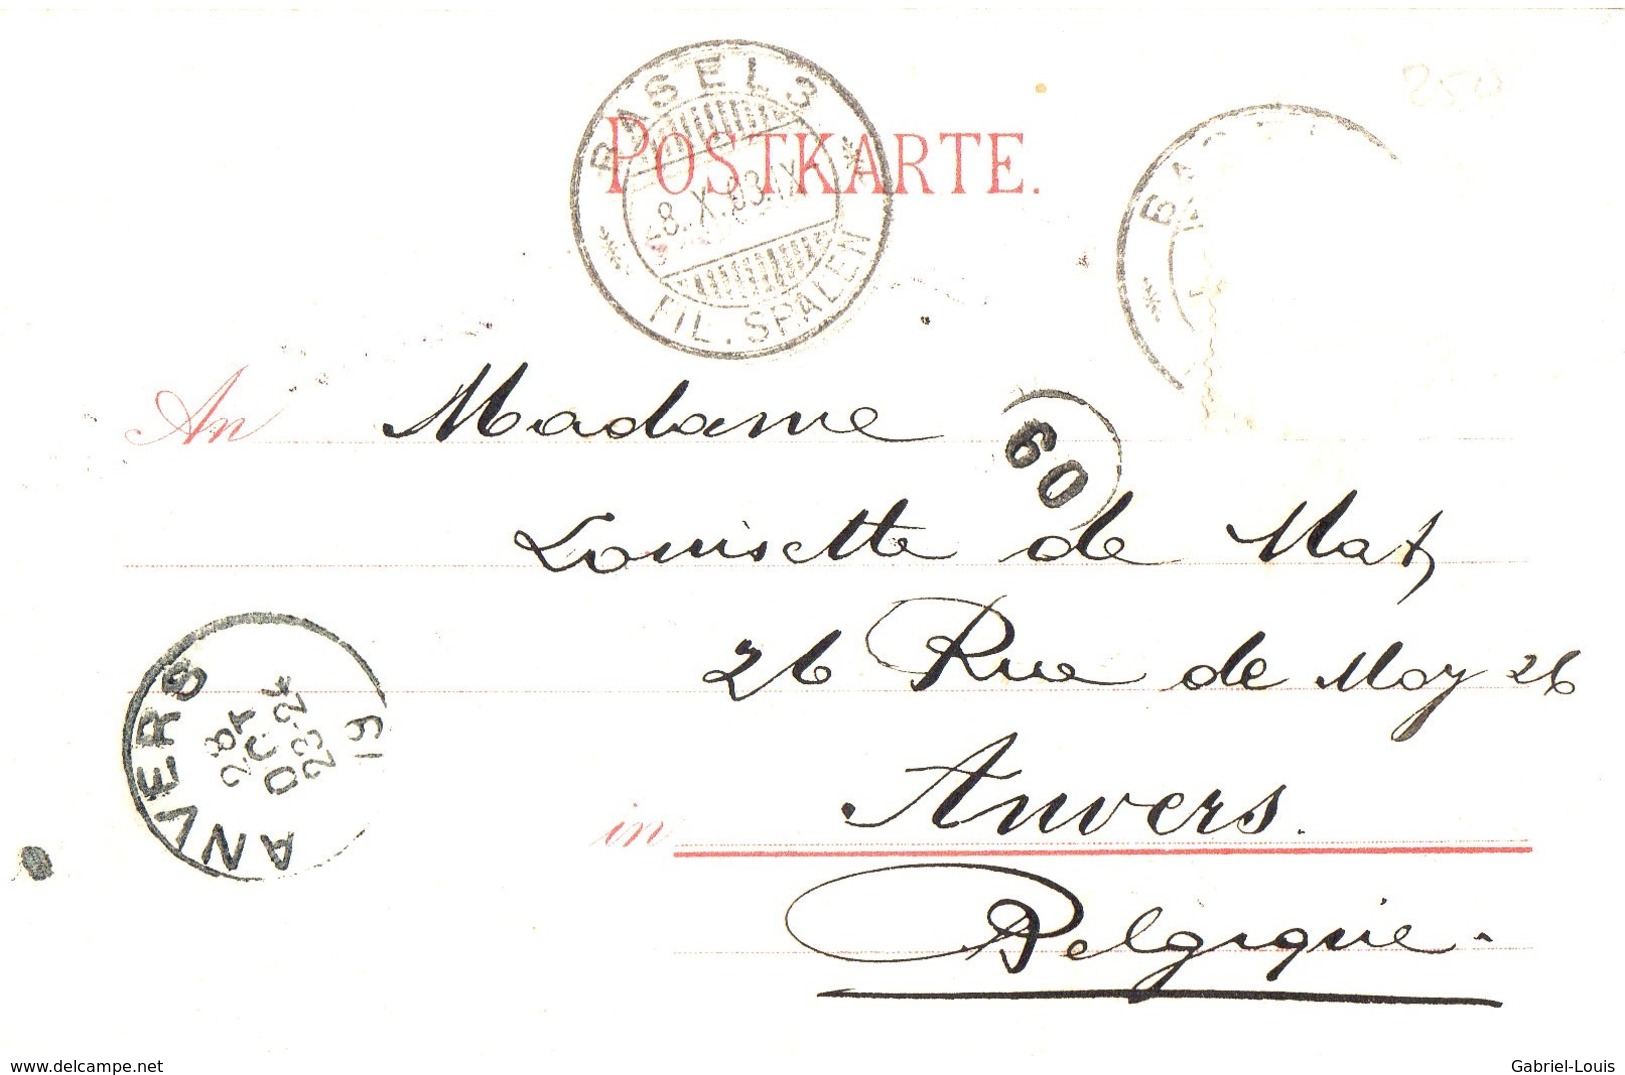 BASEL 3
-8.X.03.IX-
FIL. SPALEN
POSTKARTE.
An Madame
60
Louisette de Mat
26 Rue de Moy 26
ANVERS
OCT
23-24
19
in Anvers.
Belgique.
www.delcampe.net
Gabriel-Louis